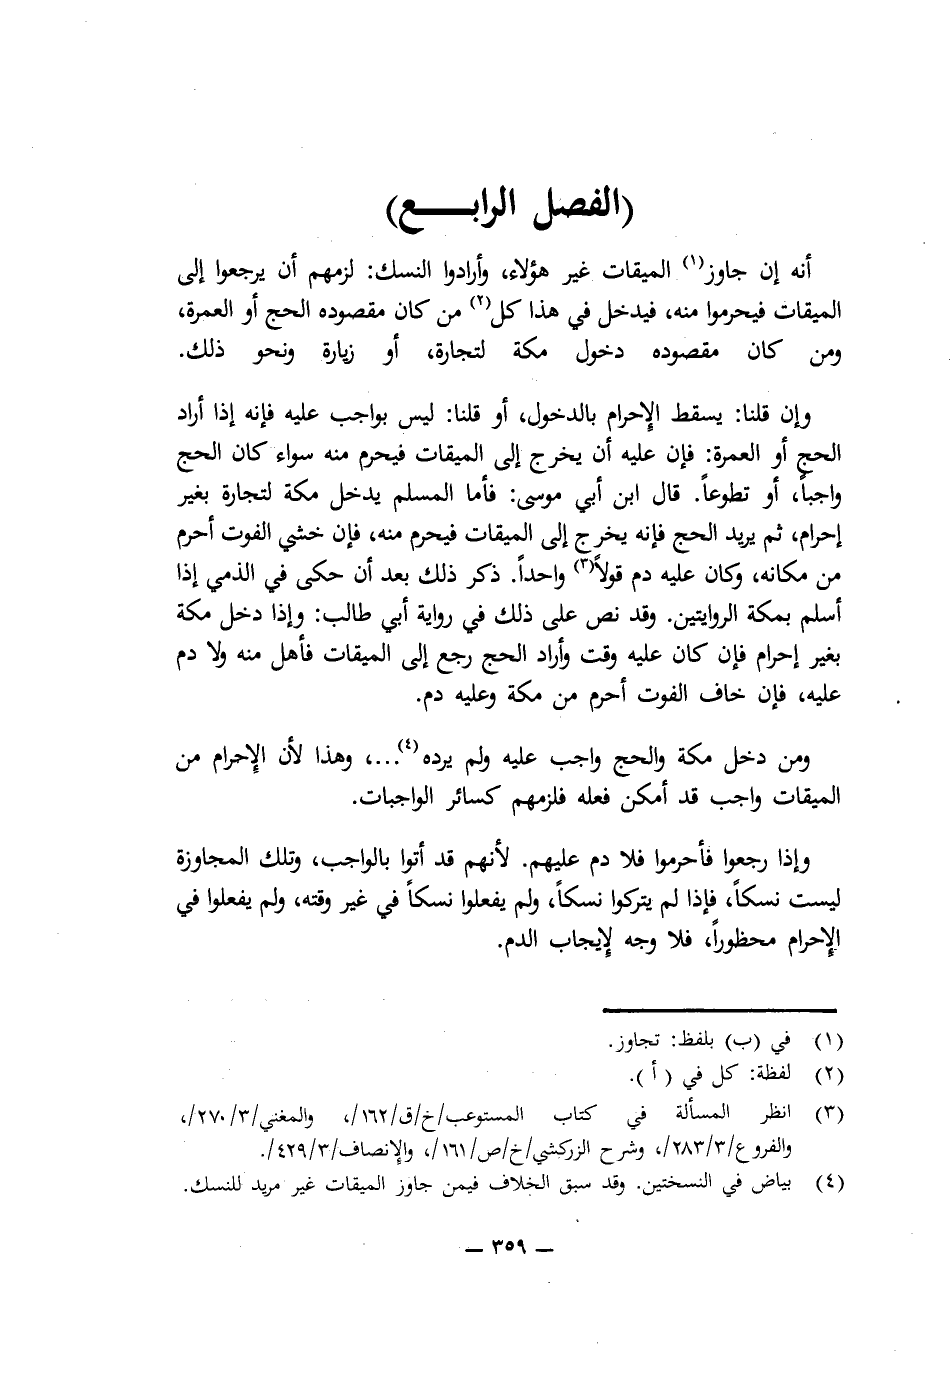 (الفصل الرابـــــع)
أنه إن جاوز(١) الميقات غير هؤلاء، وأرادوا النسك: لزمهم أن يرجعوا إلى
الميقات فيحرموا منه، فيدخل في هذا كل(٢) من كان مقصوده الحج أو العمرة،
ومن كان مقصوده دخول مكة لتجارة، أو زيارة ونحو ذلك.
وإن قلنا: يسقط الإحرام بالدخول، أو قلنا: ليس بواجب عليه فإنه إذا أراد
الحج أو العمرة: فإن عليه أن يخرج إلى الميقات فيحرم منه سواء كان الحج
واجباً، أو تطوعاً. قال ابن أبي موسى: فأما المسلم يدخل مكة لتجارة بغير
إحرام، ثم يريد الحج فإنه يخرج إلى الميقات فيحرم منه، فإن خشي الفوت أحرم
من مكانه، وكان عليه دم قولاً(٣) واحداً. ذكر ذلك بعد أن حكى في الذمي إذا
أسلم بمكة الروايتين. وقد نص على ذلك في رواية أبي طالب: وإذا دخل مكة
بغير إحرام فإن كان عليه وقت وأراد الحج رجع إلى الميقات فأهل منه ولا دم
عليه، فإن خاف الفوت أحرم من مكة وعليه دم.
ومن دخل مكة والحج واجب عليه ولم يرده(٤)...، وهذا لأن الإحرام من
الميقات واجب قد أمكن فعله فلزمهم كسائر الواجبات.
وإذا رجعوا فأحرموا فلا دم عليهم. لأنهم قد أتوا بالواجب، وتلك المجاوزة
ليست نسكاً، فإذا لم يتركوا نسكاً، ولم يفعلوا نسكاً في غير وقته، ولم يفعلوا في
الإحرام محظوراً، فلا وجه لإيجاب الدم.
(١) في (ب) بلفظ: تجاوز.
(٢) لفظة: كل في ( أ ).
(٣) انظر المسألة في كتاب المستوعب/خ/ق/١٦٢/، والمغني/٣/٢٧٠/،
والفروع/٣/٢٨٣/، وشرح الزركشي/خ/ص/١٦١/، والإنصاف/٣/٤٢٩/.
(٤) بياض في النسختين. وقد سبق الخلاف فيمن جاوز الميقات غير مريد للنسك.
— ٣٥٩ —